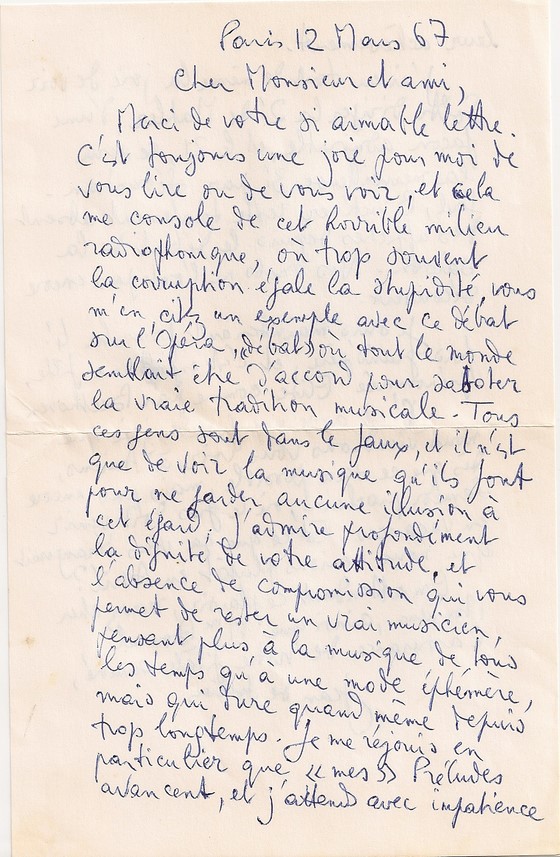 Paris 12 Mars 67
Cher Monsieur et ami,
Merci de votre si aimable lettre.
C'est toujours une joie pour moi de
vous lire ou de vous voir, et cela
me console de cet horrible milieu
radiophonique, où trop souvent
la corruption égale la stupidité, vous
m'en citez un exemple avec ce débat
sur l'Opéra, «débat» où tout le monde
semblait être d'accord pour saboter
la vraie tradition musicale. Tous
ces gens sont dans le faux, et il n'est
que de voir la musique qu'ils font
pour ne garder aucune illusion à
cet égard. J'admire profondément
la dignité de votre attitude, et
l'absence de compromission qui vous
permet de rester un vrai musicien,
pensant plus à la musique de tous
les temps qu'à une mode éphémère,
mais qui dure quand même depuis
trop longtemps. Je me réjouis en
particulier que «mes» Préludes
avancent, et j'attends avec impatience